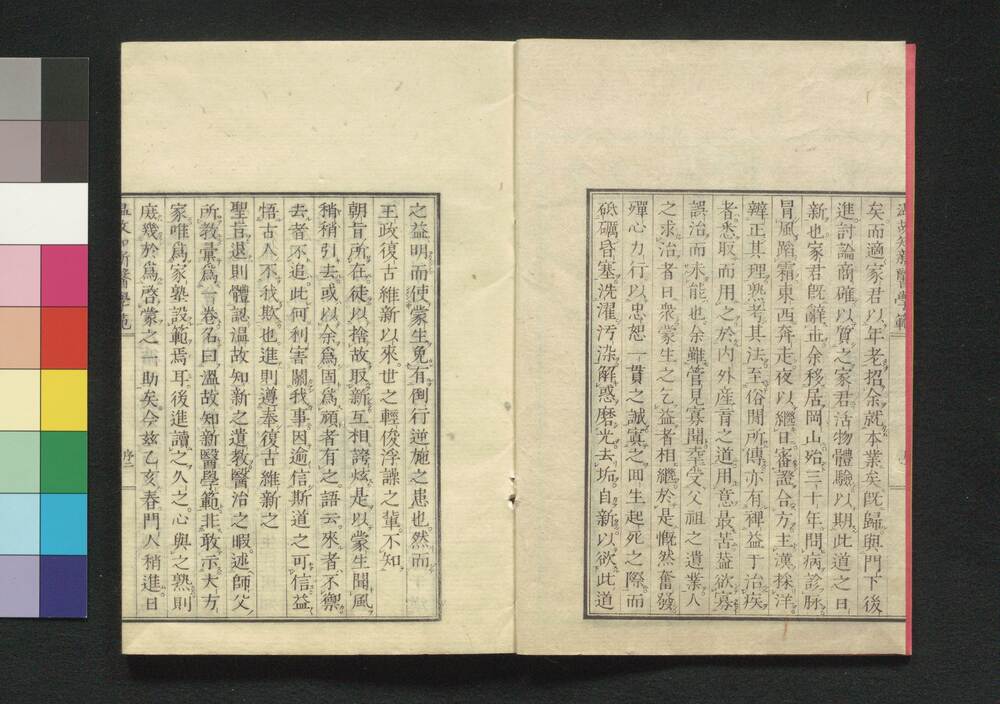 矣而適家君以年老招余就本業矣旣歸與門下後
進討論商確以質之家君活物體驗以期此道之日
新也家君旣辭世余移居岡山殆三十年問病診脉
冐風踏霜東西奔走夜以繼日審證合方主漢採洋
辨正其理熟考其法至俗間所傳亦有裨益于治疾
者悉取而用之於內外産育之道用意最苦葢欲寡
誤治而未能也余雖管見寡聞幸受父祖之遺業人
之求治者日衆蒙生之乞益者相繼於是慨然奮發
殫心力行以忠恕一貫之誠寘之回生起死之際而
砥礪昏塞洗濯汚染解惑磨光去垢自新以欲此道
之益明而使蒙生免有倒行逆施之患也然而
王政復古維新以來世之輕俊浮譟之輩不知
朝旨所在徒以捨故取新互相誇炫是以蒙生聞風
稍稍引去或以余爲固爲頑者有之語云來者不禦
去者不追此何利害關我事因逾信斯道之可信益
悟古人不我欺也進則遵奉復古維新之
聖旨退則體認温故知新之遺教醫治之暇述師父
所教彙爲一卷名曰溫故知新醫學範非敢示大方
家唯爲家塾設範焉耳後進讀之久之心與之熟則
庶幾於爲啓蒙之一助矣今玆乙亥春門人稍進日
温故知新醫學範
序二